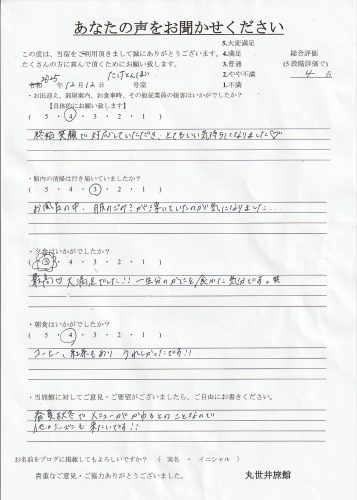 あなたの声をお聞かせください
この度は、当宿をご利用頂きまして誠にありがとうございます。
たくさんの方に喜んで頂くためにお願い致します。
5.大変満足
4.満足
3.普通
2.やや不満
1.不満
総合評価
(5段階評価で)
4 点
2025年12月12日 たけとんぼ 号室
・お出迎え、部屋案内、お食事時、その他従業員の接客はいかがでしたか?
【具体的にお願い致します】
( 5 ・ 4 ・ 3 ・ 2 ・ 1 )
終始笑顔で対応していただき、とてもいい気持ちになりました♡
・館内の清掃は行き届いていましたか?
( 5 ・ 4 ・ 3 ・ 2 ・ 1 )
お風呂の中、
浮いていたのが気になりました...
・夕食はいかがでしたか?
( 5 ・ 4 ・ 3 ・ 2 ・ 1 )
最高♡大満足でした!!一生分のかにを食べた気分です。
・朝食はいかがでしたか?
( 5 ・ 4 ・ 3 ・ 2 ・ 1 )
コーヒー、紅茶もあり うれしかったです!!
・当旅館に対してご意見・ご要望がございましたら、ご自由にお書きください。
春夏秋冬でメニューがかわるとのことなので
他のシーズンにも来たいです!!
お名前をブログに掲載してもよろしいですか? ( 実名 ・ イニシャル )
貴重なご意見・ご協力ありがとうございました。
丸世井旅館